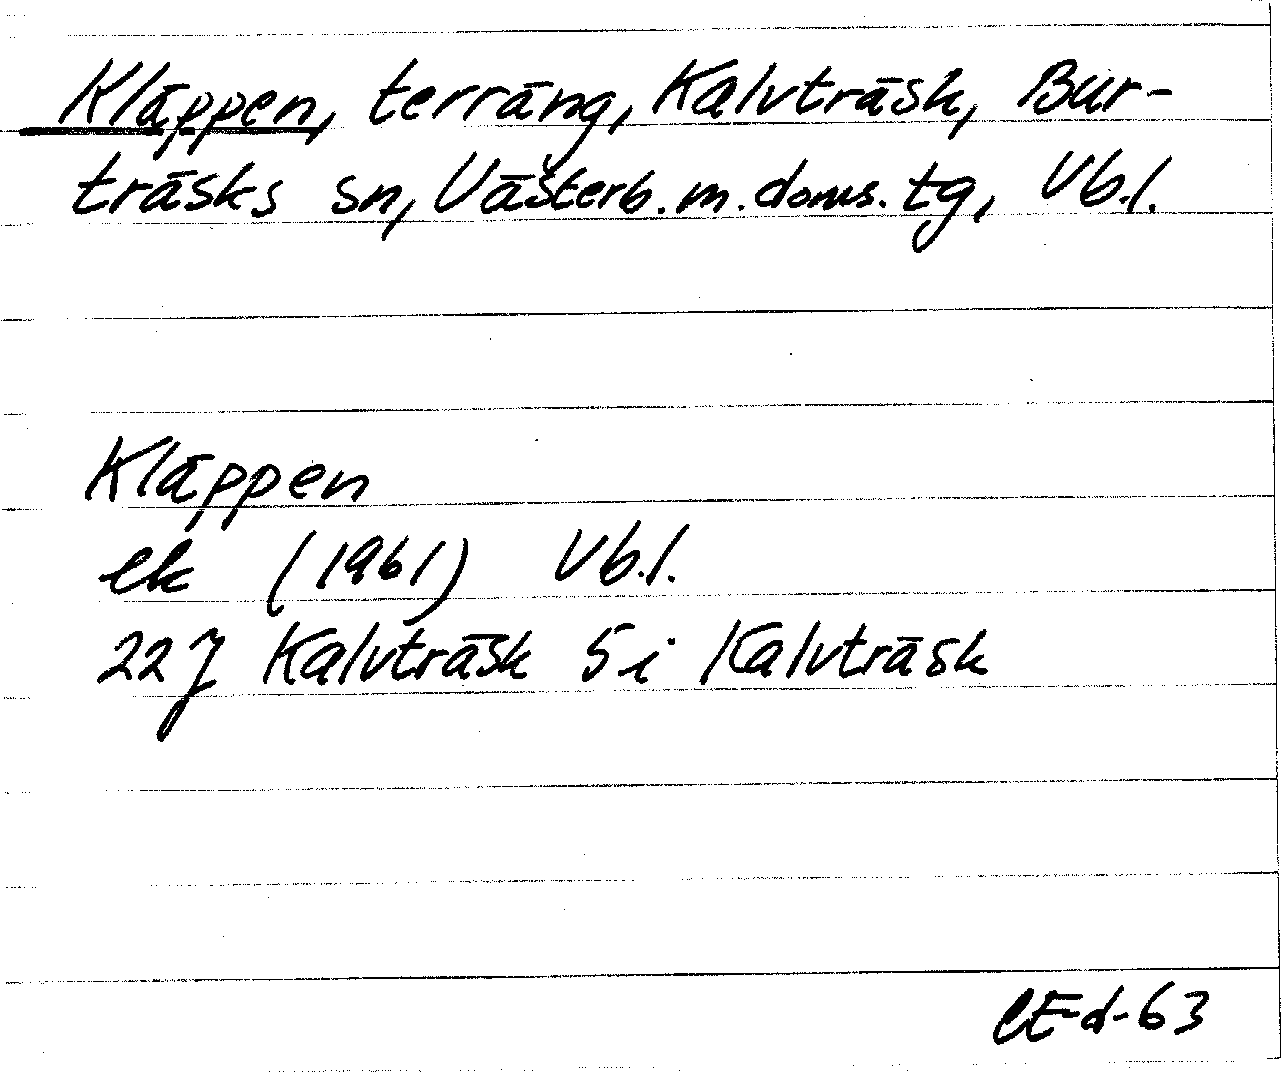 Kläppen, terräng, Kalvträsk, Bur-
träsks sn, Västerb. m. doms. tg, Vb.l.
Kläppen
ek (1961) Vb.l.
22J Kalvträsk 5i Kalvträsk
CE-d-63